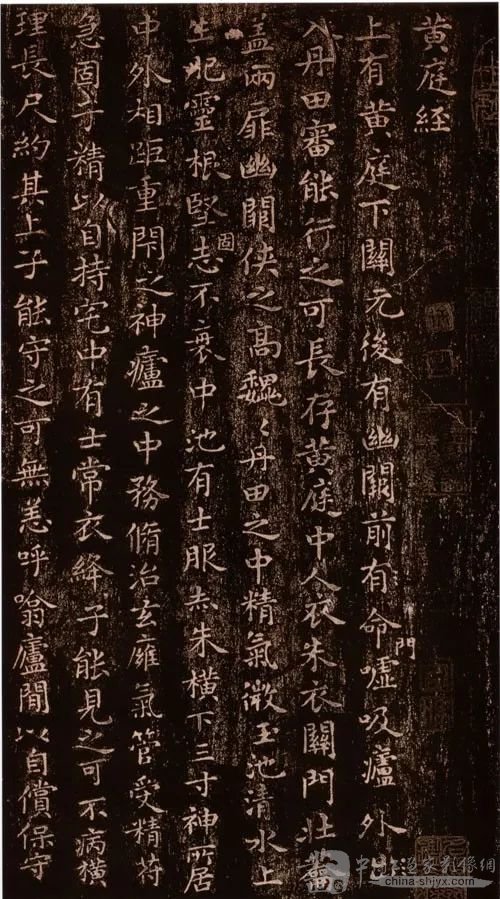 黄庭経
上有黄庭下關元後有幽闕前有命門嘘吸廬外出
入丹田審能行之可長存黄庭中人衣朱衣關門壯籥
盖兩扉幽闕侠之高巍〻丹田之中精氣微玉池清水上
生肥靈根堅固志不衰中池有士服赤朱横下三寸神所居
中外相距重閇之神廬之中務脩治玄廱氣管受精符
急固子精以自持宅中有士常衣絳子能見之可不病横
理長尺約其上子能守之可無恙呼噏廬間以自償保守
china-shjyx.com